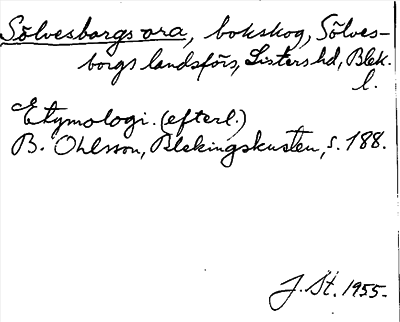 Sölvesborgs ora, bokskog, Sölves-
borgs landsförs, Listers hd, Blek.
l.
Etymologi. (efterl.)
B. Ohlsson, Blekingskusten, s. 188.
J. St. 1955.